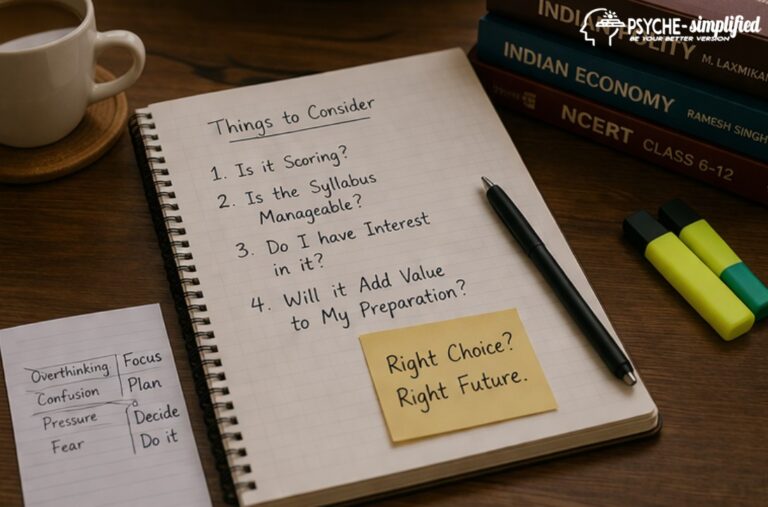 PSYCHE-simplified
BE YOUR BETTER VERSION
INDIAN POLITY
M. LAXMIKAN
INDIAN ECONOMY RAMESH SINGH
NCERT CLASS 6-12
Things to Consider
1. Is it Scoring?
2. Is the Syllabus
Manageable?
3. Do I have Interest
in it?
4. Will it Add Value
to My Preparation?
Right Choice?
Right Future.
Overthinking Focus
Confusion Plan
Pressure Decide
Fear Do it